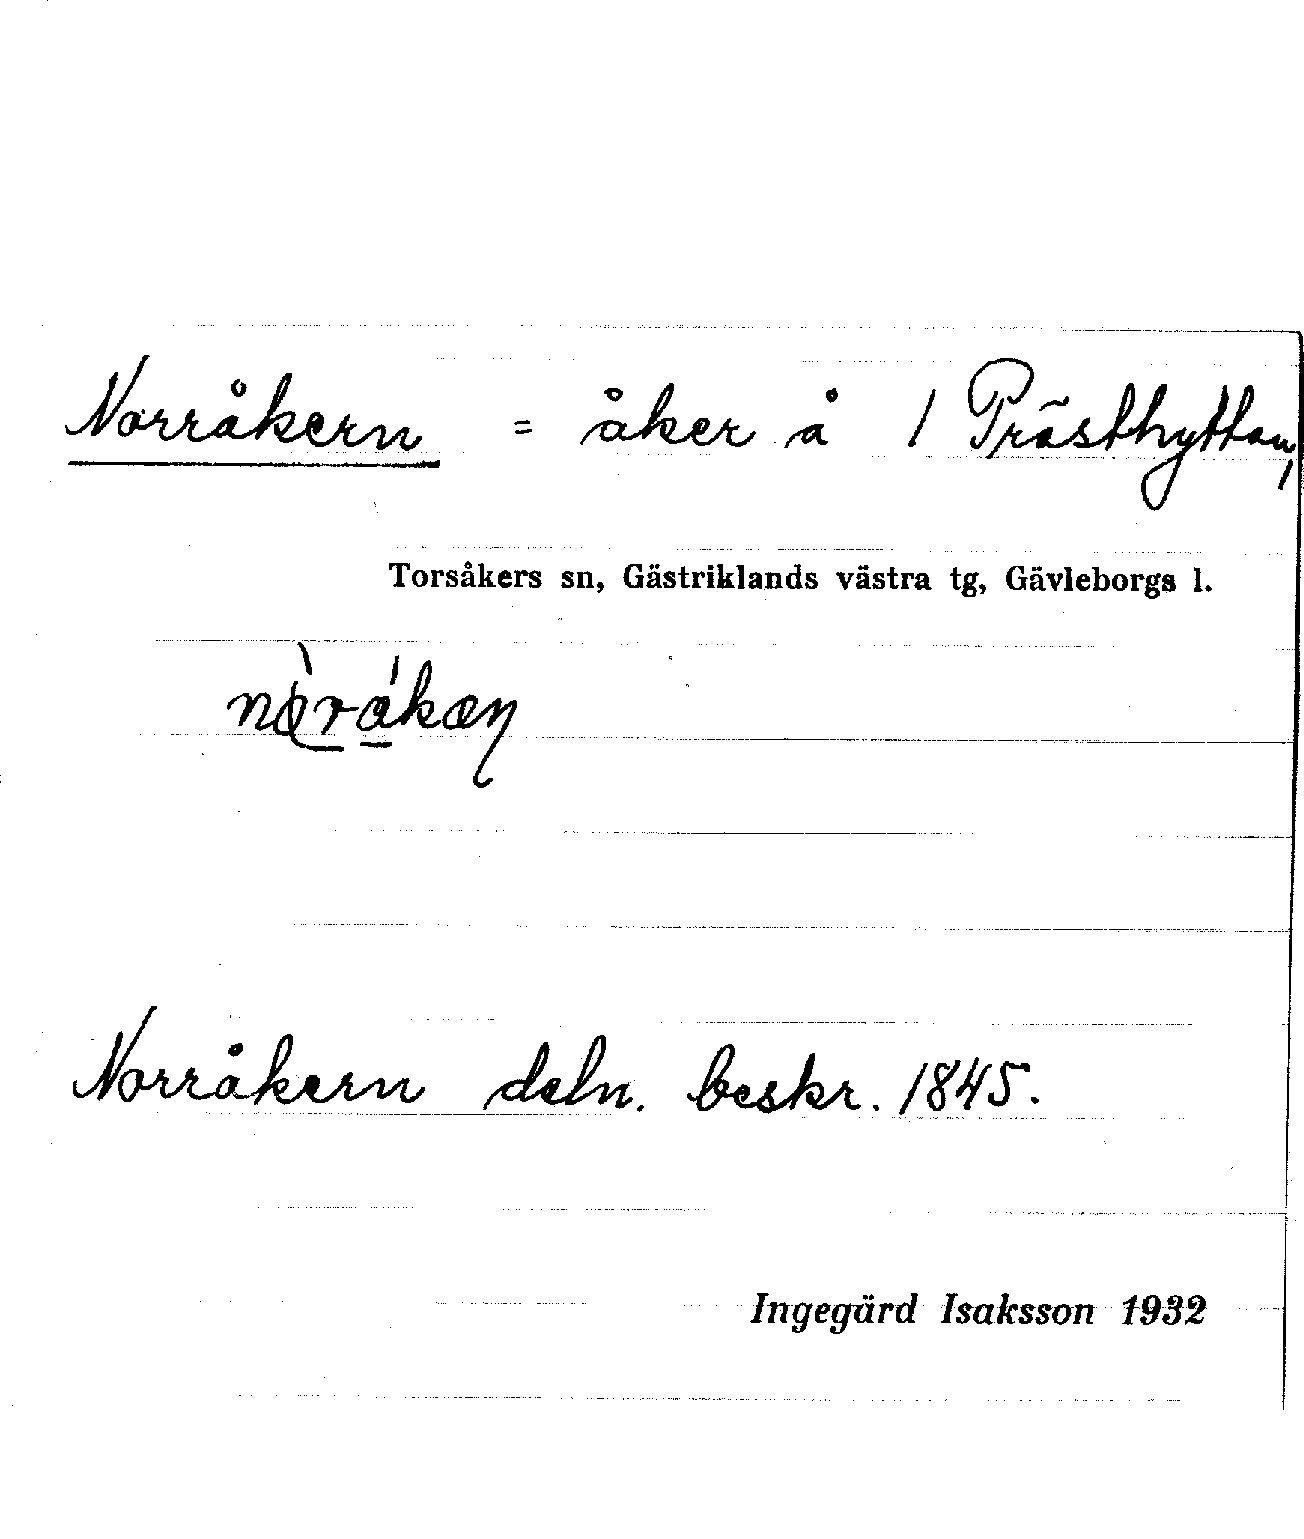 Norråkern = åker å 1 Prästhyttan,
Torsåkers sn, Gästriklands västra tg, Gävleborgs l.
Norråkern deln. beskr. 1845.
Ingegärd Isaksson 1932